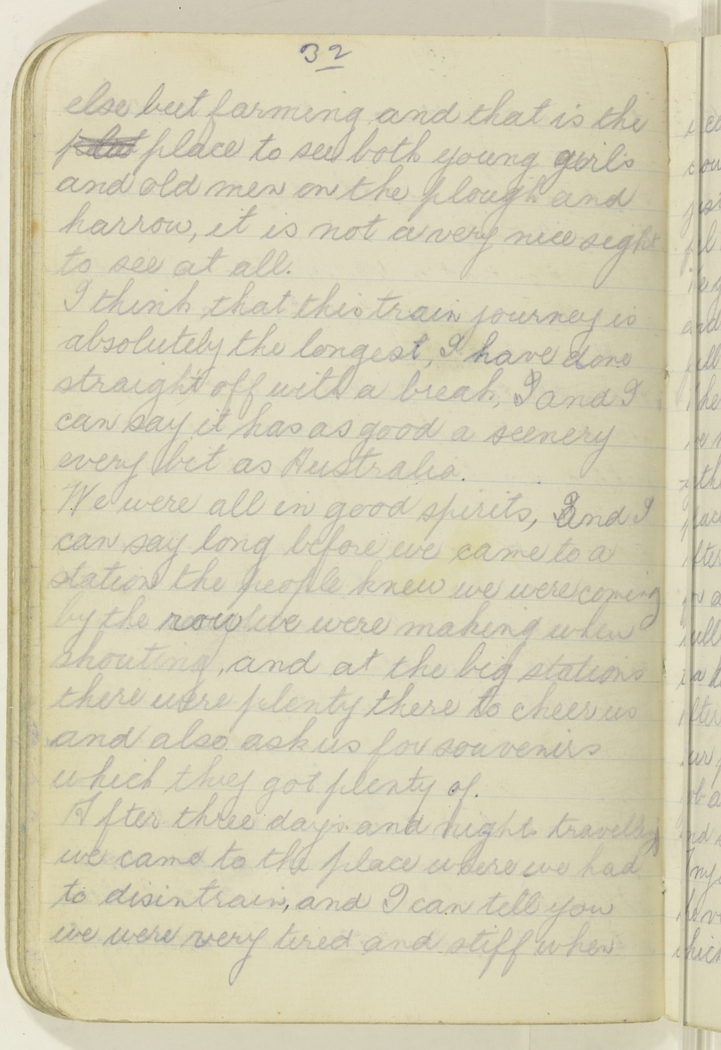 32
else but farming and that is the
place to see both young girls
and old men on the plough and
harrow, it is not a very nice sight
to see at all.
I think that this train journey is
absolutely the longest, I have done
straight off with a break, I and I
can say it has as good a scenery
every bit as Australia.
We were all in good spirits, and I
can say long before we came to a
station the people knew we were coming
by the row we were making when
shouting, and at the big stations
there were plenty there to cheer us
and also ask us for souvenirs
which they got plenty of.
After three days and nights travelling
we came to the place where we had
to disintrain, and I can tell you
we were very tired and stiff when